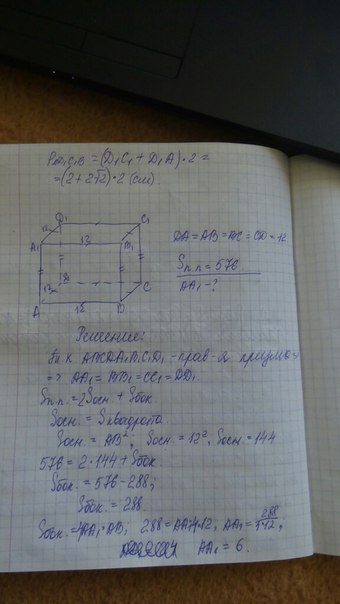 P AD₁C₁B = (D₁C₁ + D₁A) · 2 =
= (2 + 2√2) · 2 (см).
D₁ C₁
12
A₁ 12 B₁
12
12 C
A 12 B
DA = AB = BC = CD = 12
Sп.п. = 576
AA₁ - ?
Решение:
Т.к. ABCDA₁B₁C₁D₁ - прав-я призма
=> AA₁ = BB₁ = CC₁ = DD₁.
Sп.п. = 2Sосн. + Sбок.
Sосн. = Sквадрата.
Sосн. = AB², Sосн = 12², Sосн = 144
576 = 2 · 144 + Sбок
Sбок. = 576 - 288;
Sбок. = 288.
Sбок. = 4AA₁ · AB, 288 = AA₁ 4 · 12, AA₁ = 288/4·12;
AA₁ = 6.